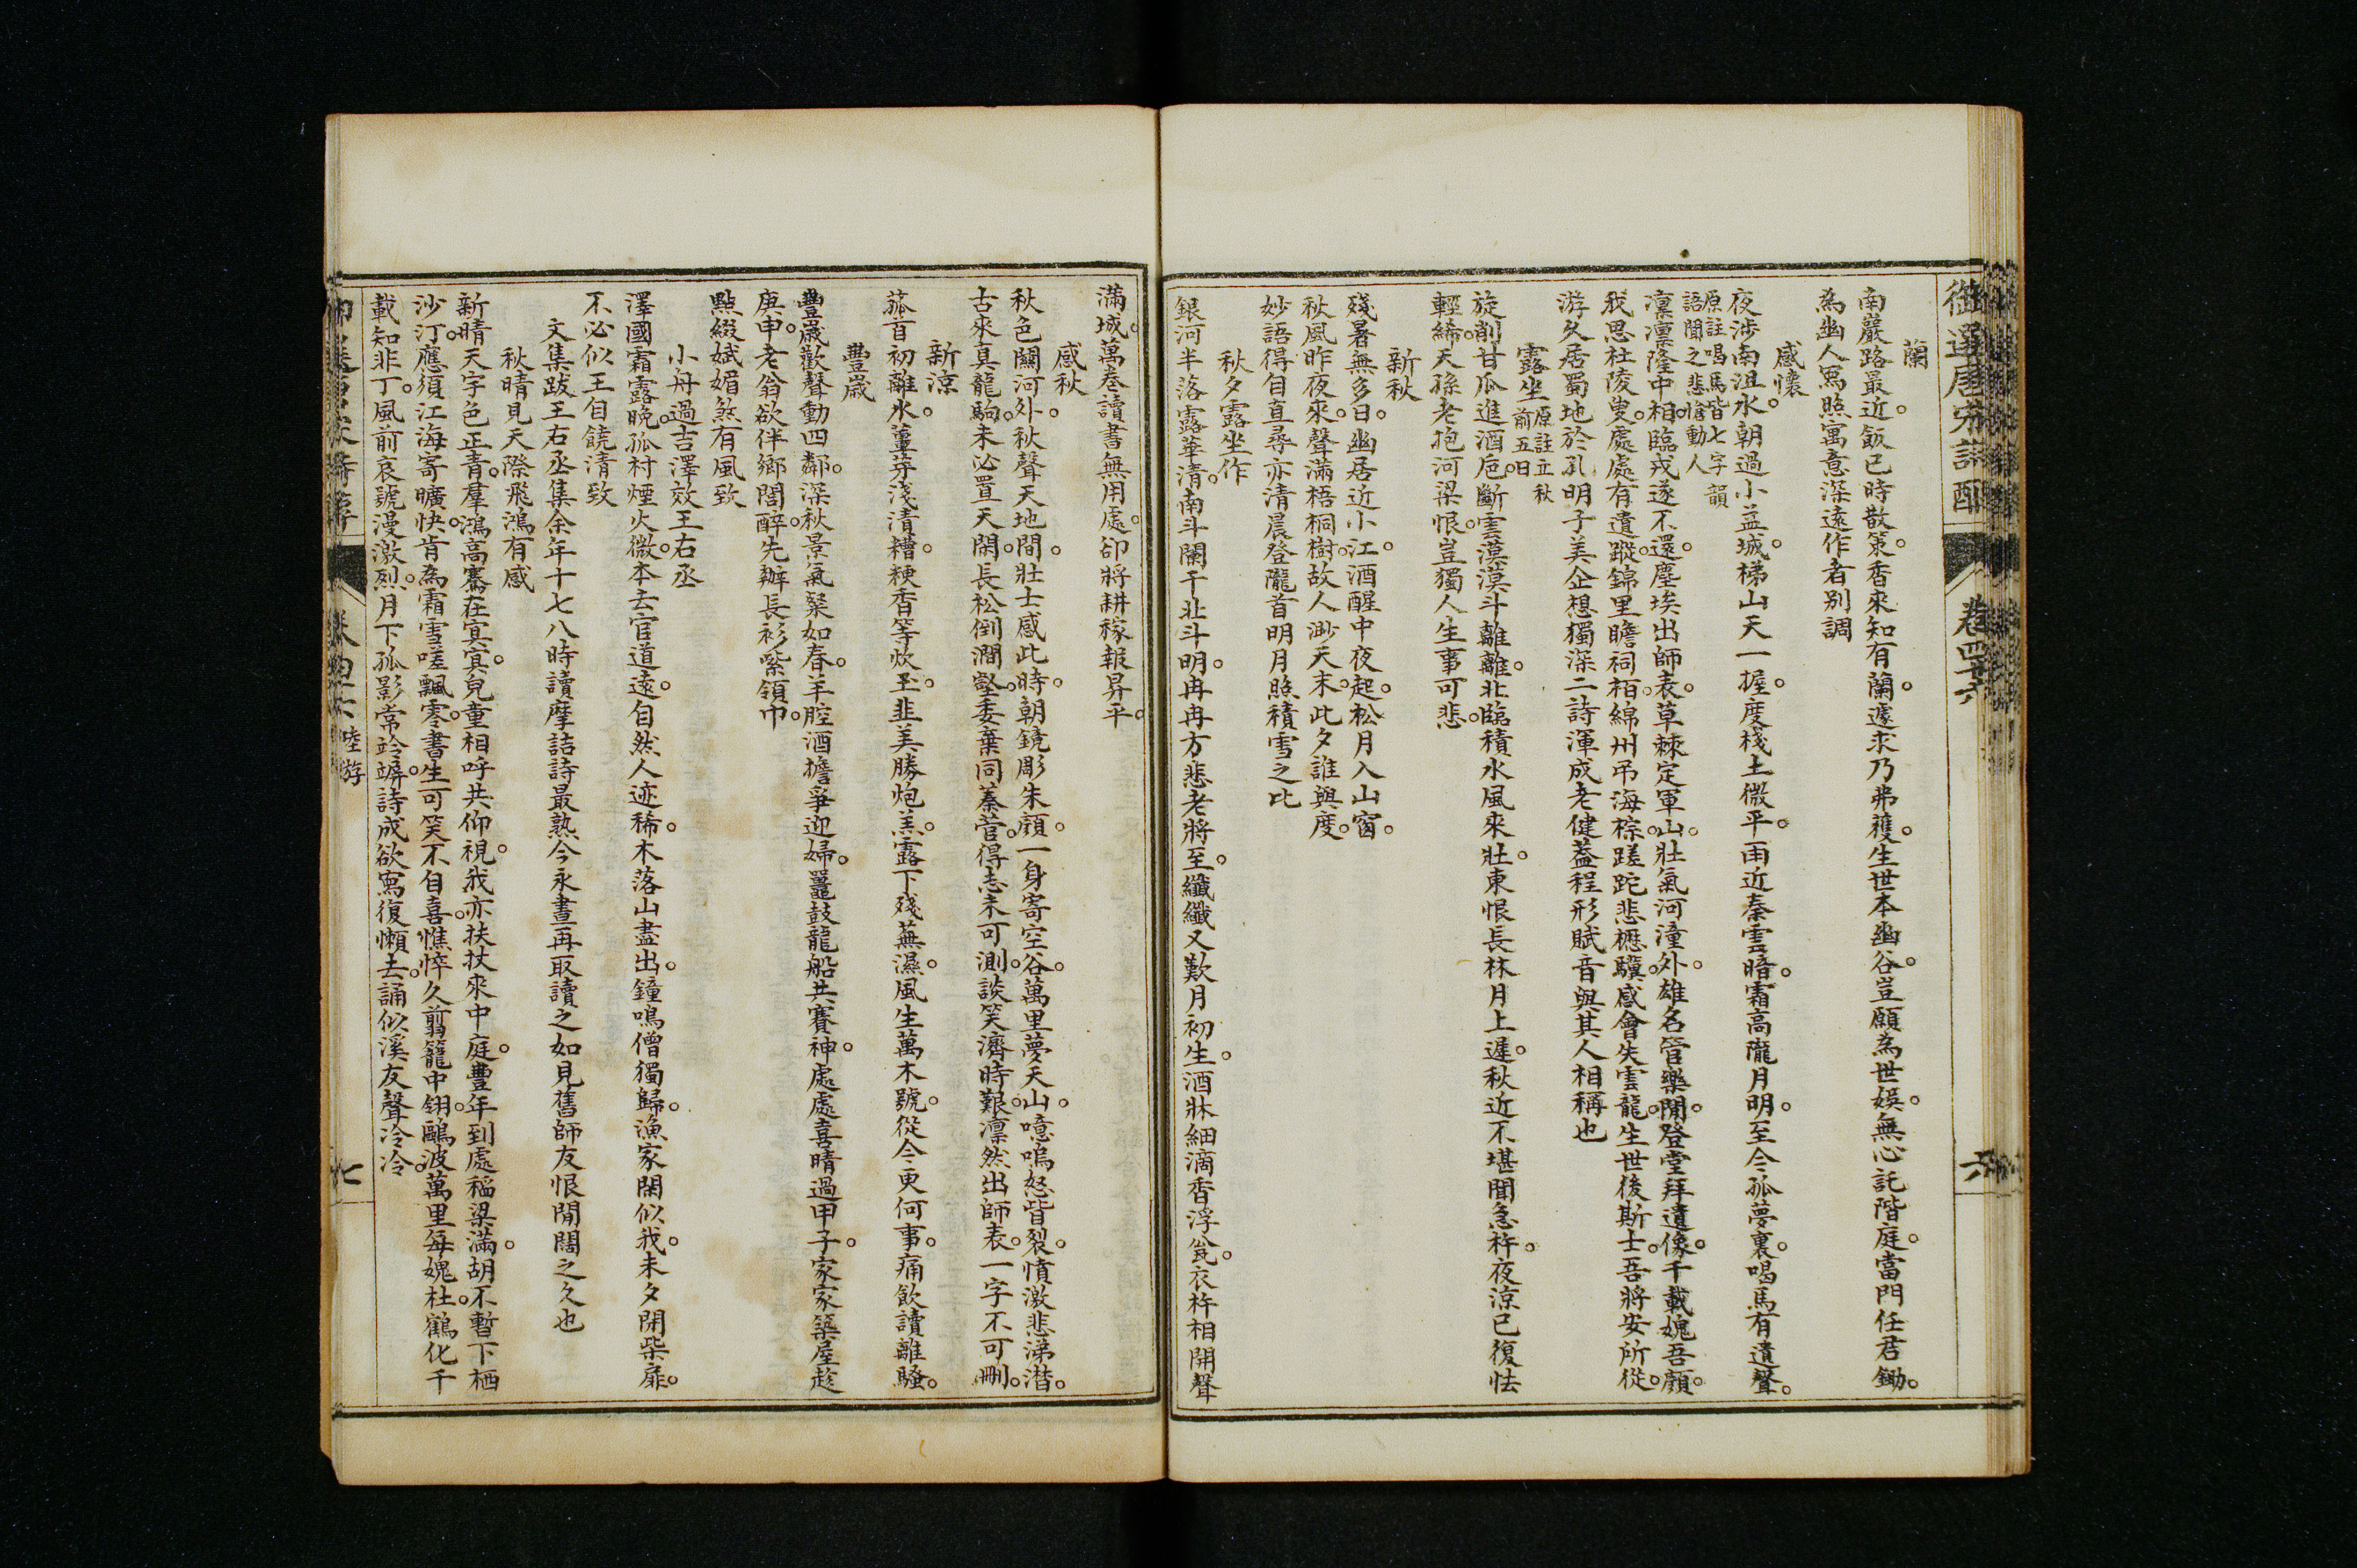 御選唐宋詩醇
卷四十六
六
蘭
南巖路最近飯已時散策香來知有蘭遽求乃弗獲生世本幽谷豈願為世娛無心託階庭當門任君鋤
為幽人寫照寓意深遠作者別調
感懷
夜涉南沮水朝過小益城梯山天一握度棧土微平雨近秦雲暗霜高隴月明至今孤夢裏喝馬有遺聲
原註喝馬皆七字韻
語聞之悲愴動人
凜凜隆中相臨戎遂不還塵埃出師表草棘定軍山壯氣河潼外雄名管樂間登堂拜遺像千載媿吾顏
我思杜陵叟處處有遺蹤錦里瞻祠栢綿州弔海棕蹉跎悲櫪驥感會失雲龍生世後斯士吾將安所從
游久居蜀地於孔明子美企想獨深二詩渾成老健葢程形賦音與其人相稱也
露坐
原註立秋
前五日
旋削甘瓜進酒卮斷雲漠漠斗離離北臨積水風來壯東恨長林月上遲秋近不堪聞急杵夜涼已復怯
輕絺天孫老抱河梁恨豈獨人生事可悲
新秋
殘暑無多日幽居近小江酒醒中夜起松月入山窗
秋風昨夜來聲滿梧桐樹故人渺天末此夕誰與度
妙語得自直尋亦清晨登隴首明月照積雪之比
秋夕露坐作
銀河半落露華清南斗闌干北斗明冉冉方悲老將至纖纖又歎月初生酒牀細滴香浮瓮衣杵相聞聲
滿城萬卷讀書無用處卻將耕稼報昇平
感秋
秋色關河外秋聲天地間壯士感此時朝鏡彫朱顏一身寄空谷萬里夢天山噫嗚怒眥裂憤激悲涕潸
古來真龍駒未必置天閑長松倒澗壑委棄同蓁菅得志未可測談笑濟時艱凜然出師表一字不可刪
新涼
菰首初離水薑芽淺漬糟粳香等炊玉韭美勝炮羔露下殘蕪濕風生萬木號從今更何事痛飲讀離騷
豐歲
豐歲歡聲動四鄰深秋景氣粲如春羊腔酒擔爭迎婦鼉鼓龍船共賽神處處喜晴過甲子家家築屋趁
庚申老翁欲伴鄉閭醉先辦長衫紫領巾
點綴娬媚煞有風致
小舟過吉澤效王右丞
澤國霜露晚孤村煙火微本去官道遠自然人迹稀木落山盡出鐘鳴僧獨歸漁家閑似我未夕閉柴扉
不必似王自饒清致
文集跋王右丞集余年十七八時讀摩詰詩最熟今永晝再取讀之如見舊師友恨間闊之久也
秋晴見天際飛鴻有感
新晴天宇色正青羣鴻高騫在冥冥兒童相呼共仰視我亦扶杖來中庭豐年到處稻粱滿胡不暫下栖
沙汀應須江海寄曠快肯為霜雪嗟飄零書生可笑不自喜憔悴久翦籠中翎鷗波萬里每媿杜鶴化千
載知非丁風前哀號漫激烈月下孤影常竛竮詩成欲寫復懶去誦似溪友聲冷冷
陸游
七